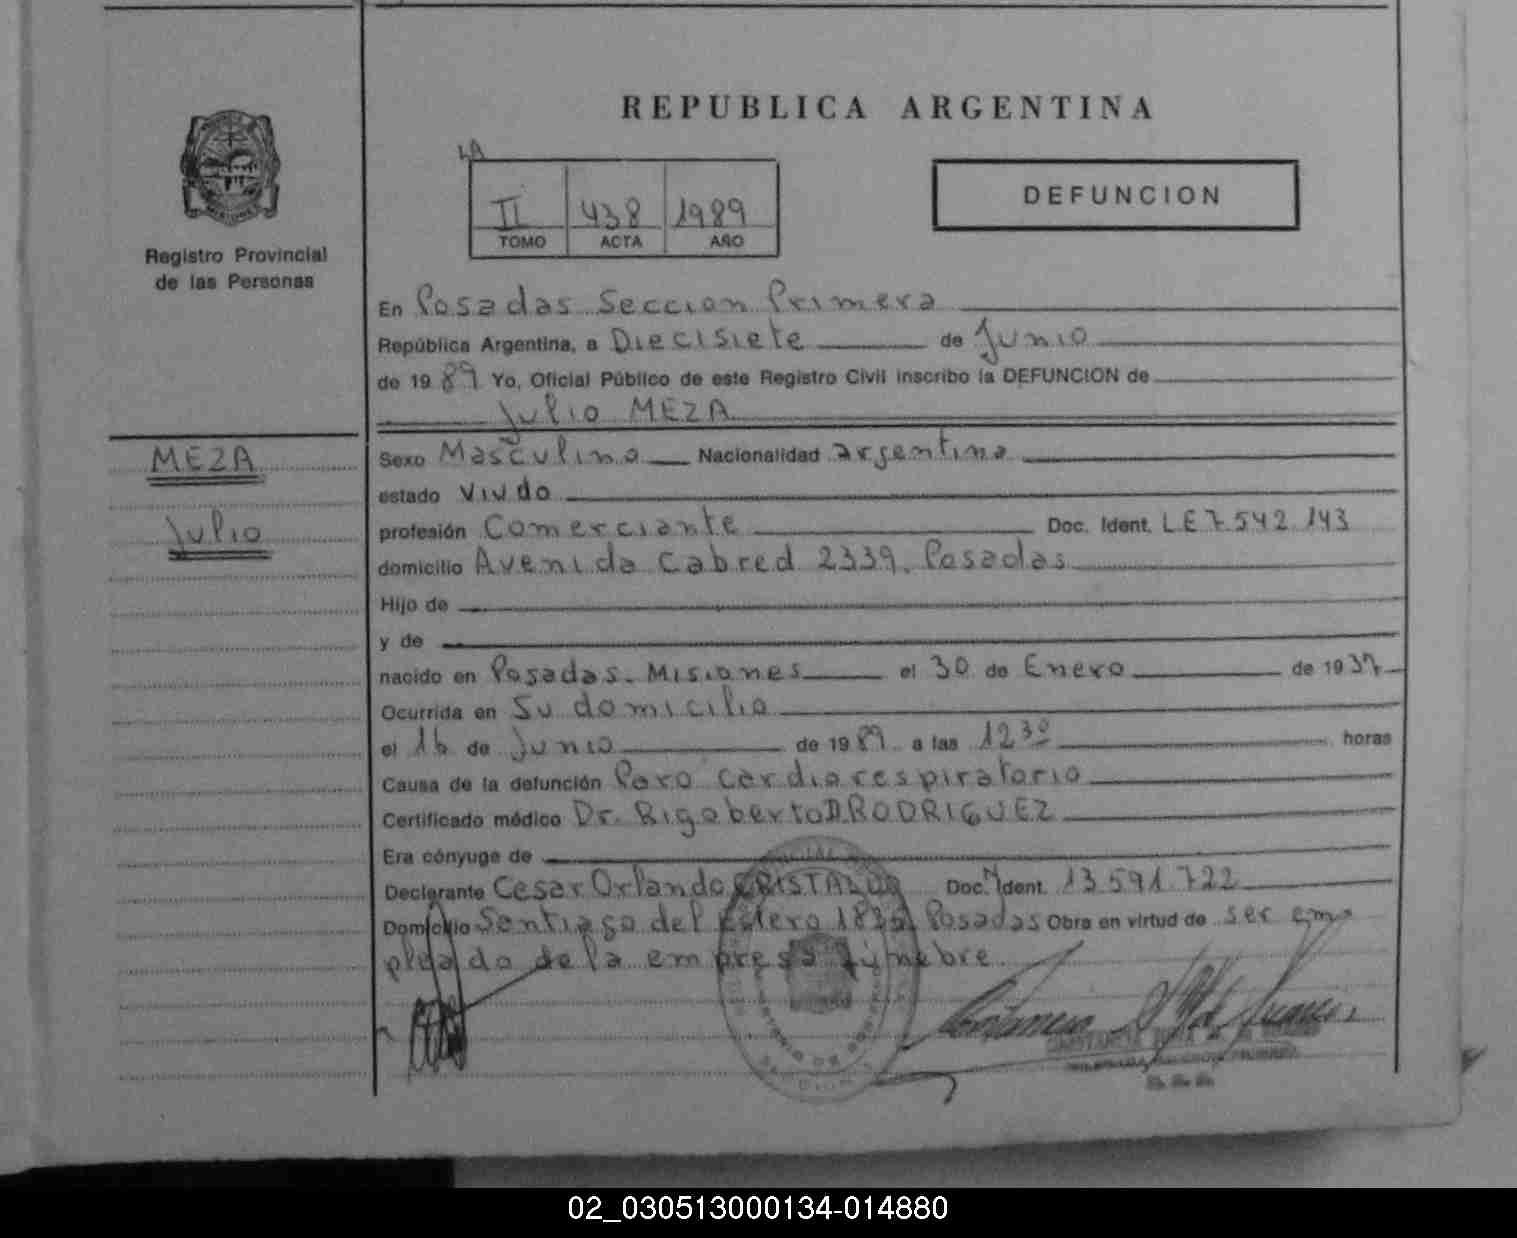 REPUBLICA ARGENTINA
LA
II 438 1989
TOMO ACTA AÑO
DEFUNCION
Registro Provincial
de las Personas
En Posadas Seccion Primera
República Argentina, a Diecisiete de Junio
de 1989 Yo, Oficial Público de este Registro Civil inscribo la DEFUNCION de
Julio MEZA
MEZA
Julio
Sexo Masculino Nacionalidad argentina
estado Viudo
profesión Comerciante Doc. Ident. LE 7.542.143
domicilio Avenida Cabred 2339. Posadas
Hijo de
y de
nacido en Posadas. Misiones el 30 de Enero de 1937
Ocurrida en Su domicilio
el 16 de Junio de 1989 a las 12 30 horas
Causa de la defunción Paro cardiorespiratorio
Certificado médico Dr. Rigoberto D. RODRIGUEZ
Era cónyuge de
Declarante Cesar Orlando CRISTALDO Doc. Ident. 13.591.722
Domicilio Santiago del Estero Posadas Obra en virtud de ser em
pleado de la empresa fúnebre.
02_030513000134-014880